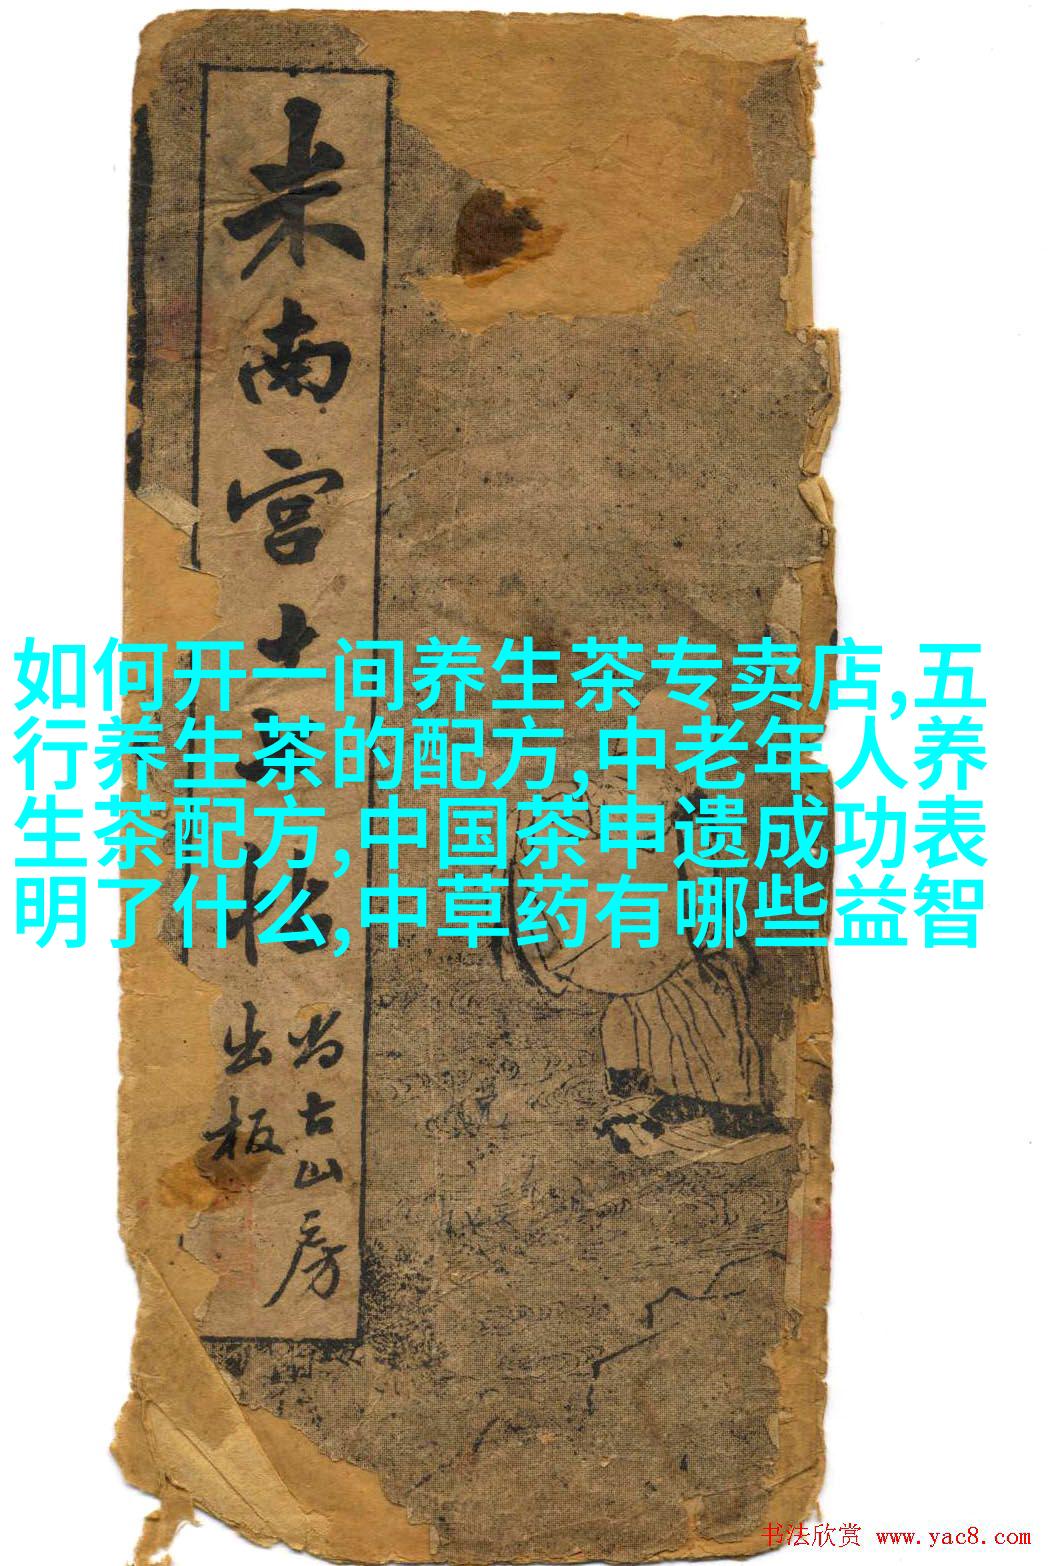 米南宫十七帖
尚古山房
出板
如何开一间养生茶专卖店,五
行养生茶的配方,中老年人养
生茶配方,中国茶申遗成功表
明了什么,中草药有哪些益智
书法欣赏 www.yac8.com